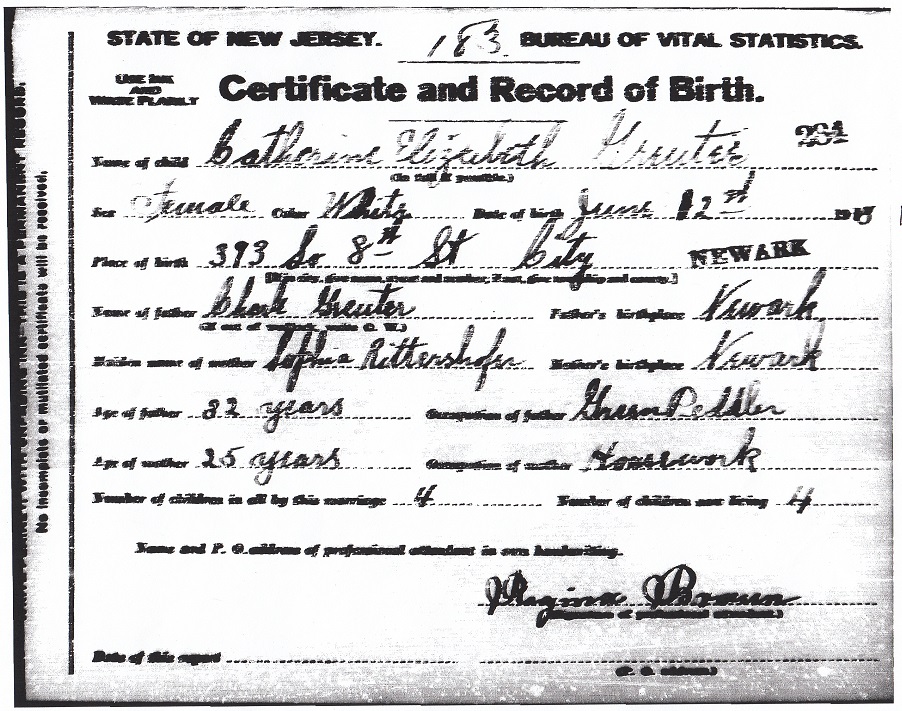 STATE OF NEW JERSEY. 183 BUREAU OF VITAL STATISTICS.
USE INK AND WRITE PLAINLY
Certificate and Record of Birth.
Name of child Catherine Elizabeth Greuter 204
(In full if possible.)
Sex Female Color White Date of birth June 12th 1913
Place of birth 393 So 8th St City NEWARK
[If in city, give name, street and number; if not, give township and county.]
Name of father Chark Greuter Father's birthplace Newark
(If out of wedlock, write O. W.)
Maiden name of mother Sophia Rittershofer Mother's birthplace Newark
Age of father 32 years Occupation of father Green Peddler
Age of mother 25 years Occupation of mother Housework
Number of children in all by this marriage 4 Number of children now living 4
Name and P. O. address of professional attendant in own handwriting.
Regina Braun
(Signature of professional attendant.)
Date of this report
(P. O. address.)
No incomplete or mutilated certificate will be received.